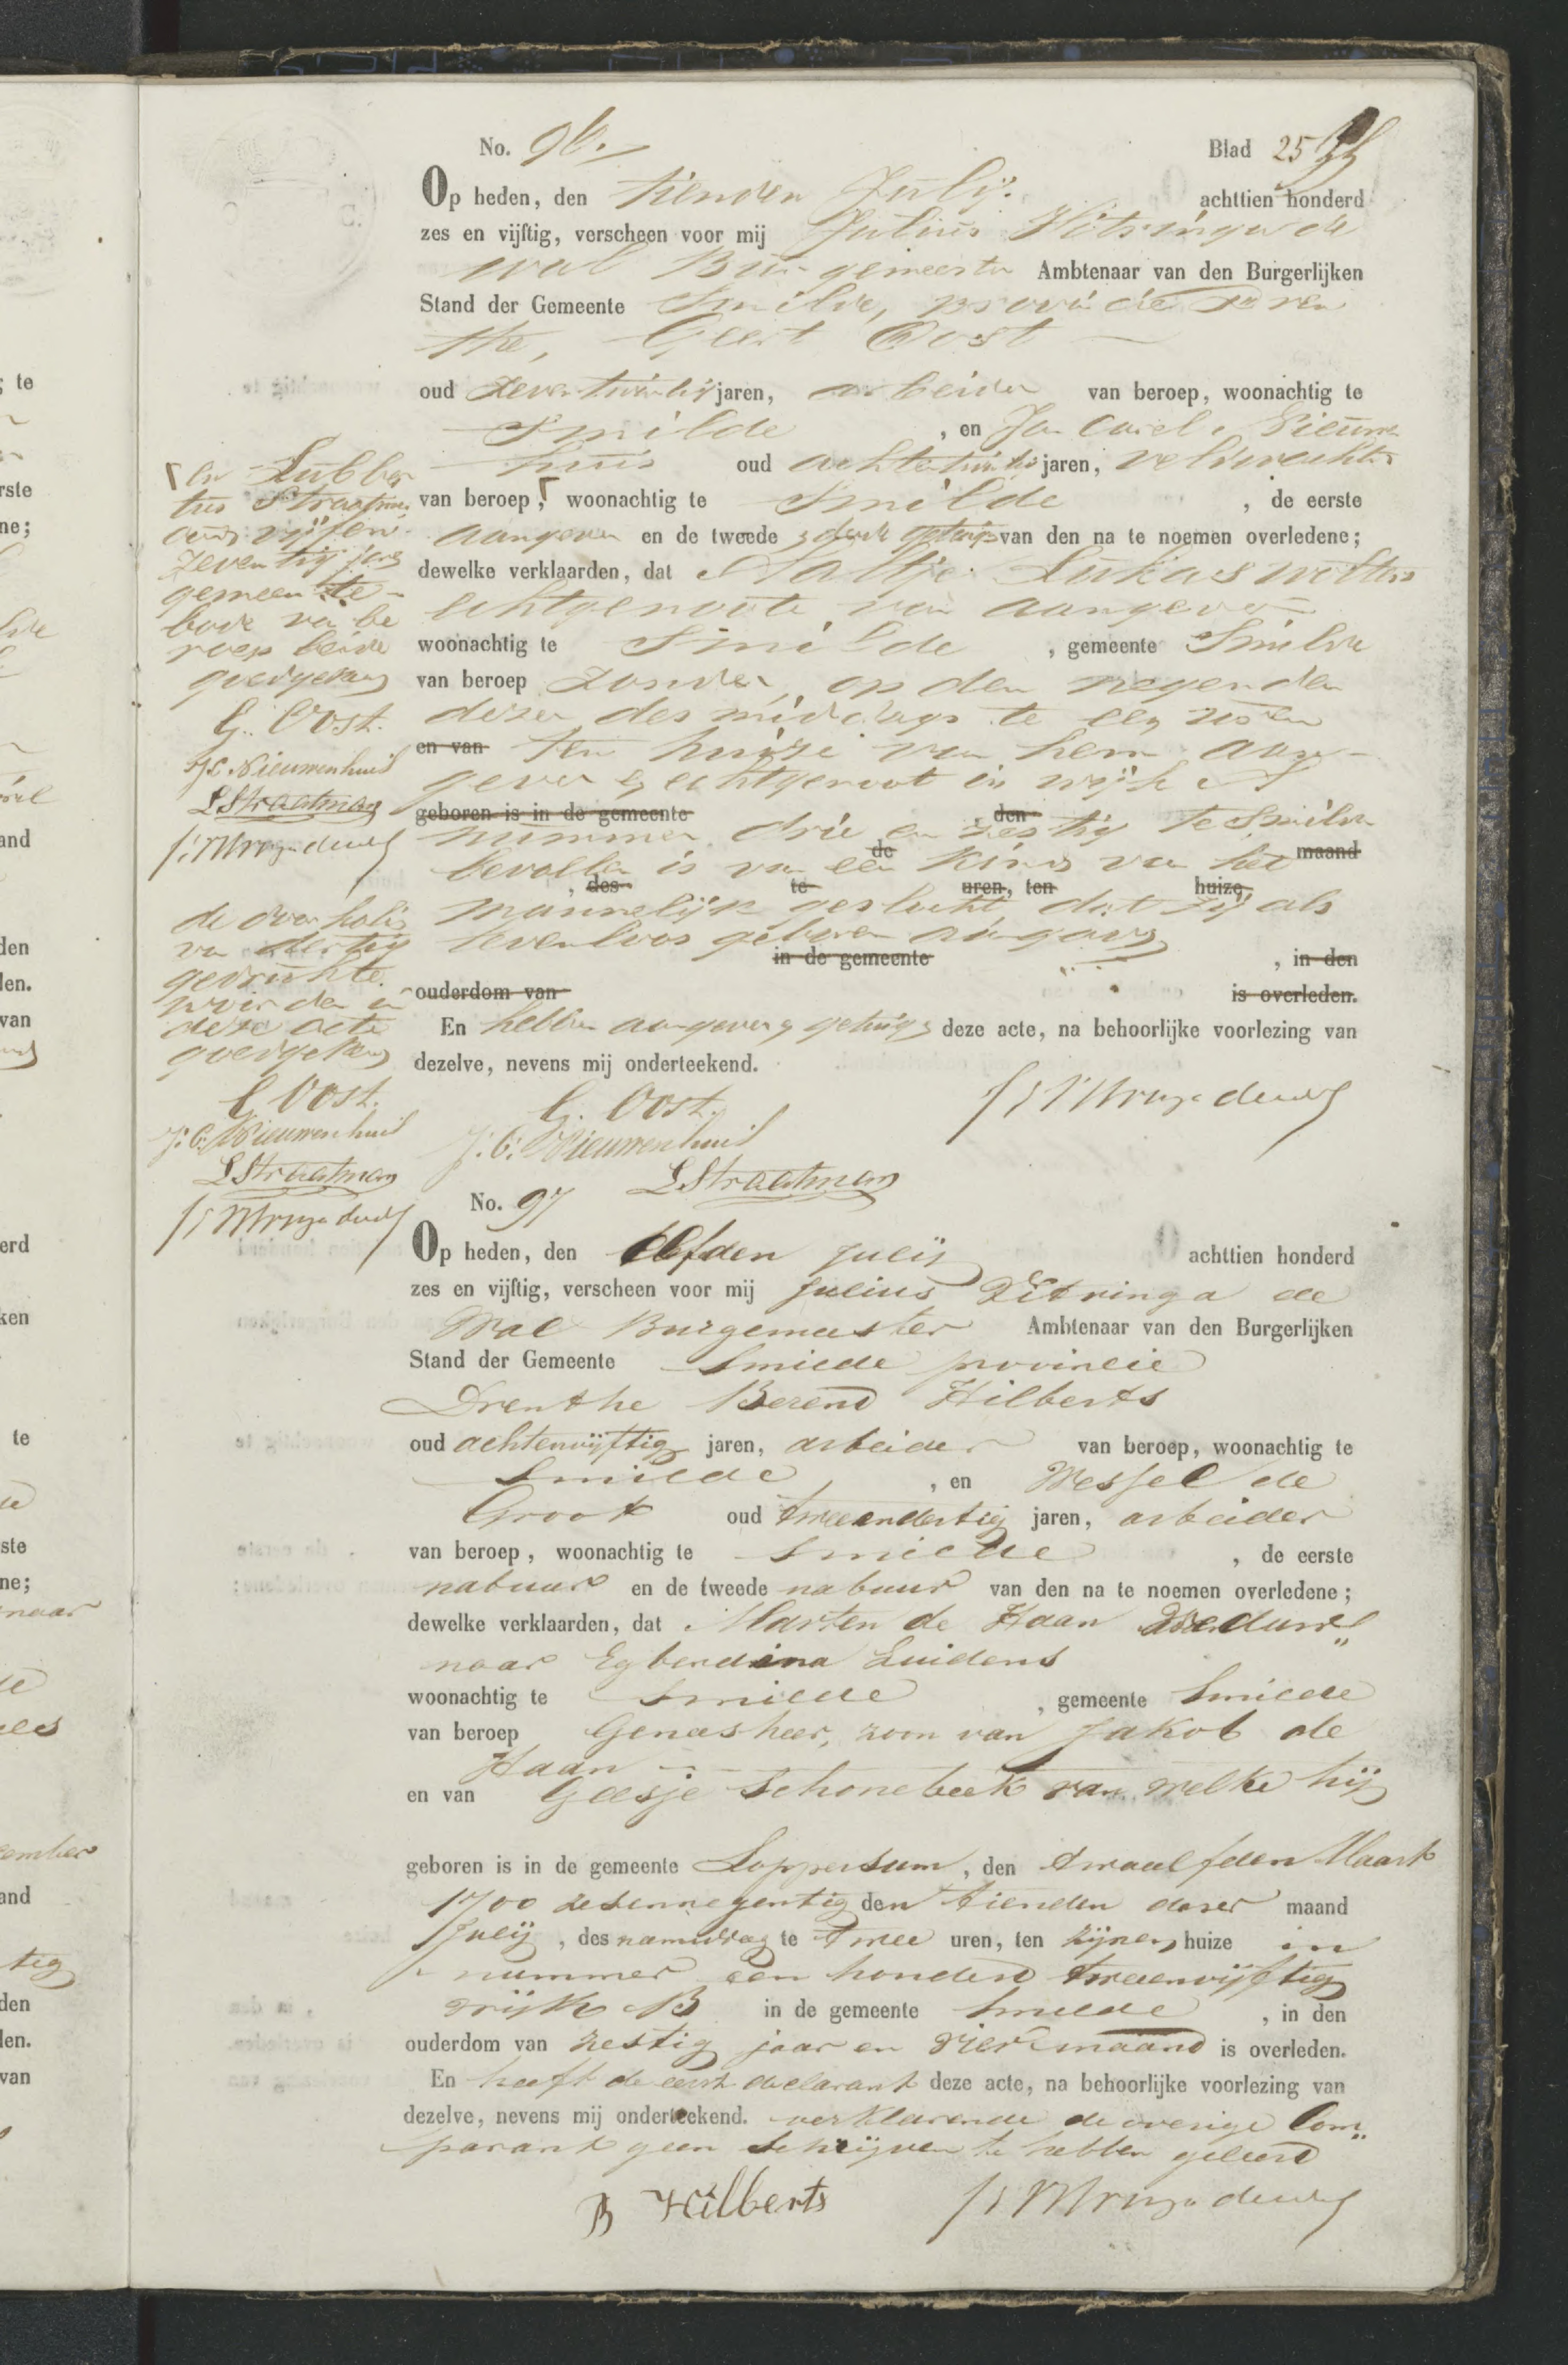 No. 96.
Blad 25
Op heden, den tienden Julij. achttien honderd
zes en vijftig, verscheen voor mij Julius Vitringa de
Wal Burgemeester Ambtenaar van den Burgerlijken
Stand der Gemeente Smilde, provincie Dren
the, Geert Oost
oud zevenentwintig jaren, arbeider van beroep, woonachtig te
Smilde, en Jan Carel Nieuwen
huis oud achtentwintig jaren, veldwachter
van beroep, woonachtig te Smilde, de eerste
aangever en de tweede derde getuigen van den na te noemen overledene;
dewelke verklaarden, dat Aaltje Lukas Wolters
echtgenoote van aangever
woonachtig te Smilde, gemeente Smilde
van beroep zonder, op den negenden
dezer des middags te een uren
en van ten huize van hem aan-
gever echtgenoot in wijk A
geboren is in de gemeente den
nummer drie en zestig te Smilde
de maand
bevallen is van een kind van het
, des te uren, ten huize,
mannelijk geslacht, dat zij als
levenloos geboren aangaven
in de gemeente , in den
ouderdom van is overleden.
En hebben aangever getuigen deze acte, na behoorlijke voorlezing van
dezelve, nevens mij onderteekend.
G. Oost.
J: C: Nieuwenhuis
LStraatman
en Lubber
tus Straatman
oud vijfen
zeventig jaren
gemeente-
bode van be
roep beide
goedgekeurd
G. Oost.
J C Nieuwenhuis
LStraatman
de doorhaling
van dertig
gedrukte
woorden in
deze acte
goedgekeurd
G Oost.
J: C: Nieuwenhuis
LStraatman
No. 97
Op heden, den elfden Julij achttien honderd
zes en vijftig, verscheen voor mij Julius Vitringa de
Wal Burgemeester Ambtenaar van den Burgerlijken
Stand der Gemeente Smilde provincie
Drenthe Berend Hilberts
oud achtenvijftig jaren, arbeider van beroep, woonachtig te
Smilde, en Wessel de
Groot oud tweeendertig jaren, arbeider
van beroep, woonachtig te Smilde, de eerste
nabuur en de tweede nabuur van den na te noemen overledene;
dewelke verklaarden, dat Marten de Haan Weduw„
naar Egberdina Luidens
woonachtig te Smilde, gemeente Smilde
van beroep Geneesheer, zoon van Jakob de
Haan
en van Geesje Schonebeek van welke hij
geboren is in de gemeente Loppersum, den twaalfden Maart
1700 zesennegentig den tienden dezer maand
Julij, des namiddag te twee uren, ten zijnen huize in
nummer een honderd tweeenvijftig
wijk B in de gemeente Smilde, in den
ouderdom van zestig jaar en vier maand is overleden.
En heeft de eerste declarant deze acte, na behoorlijke voorlezing van
dezelve, nevens mij onderteekend. verklarende de overige Com„
parant geen schrijven te hebben geleerd
B Hilberts